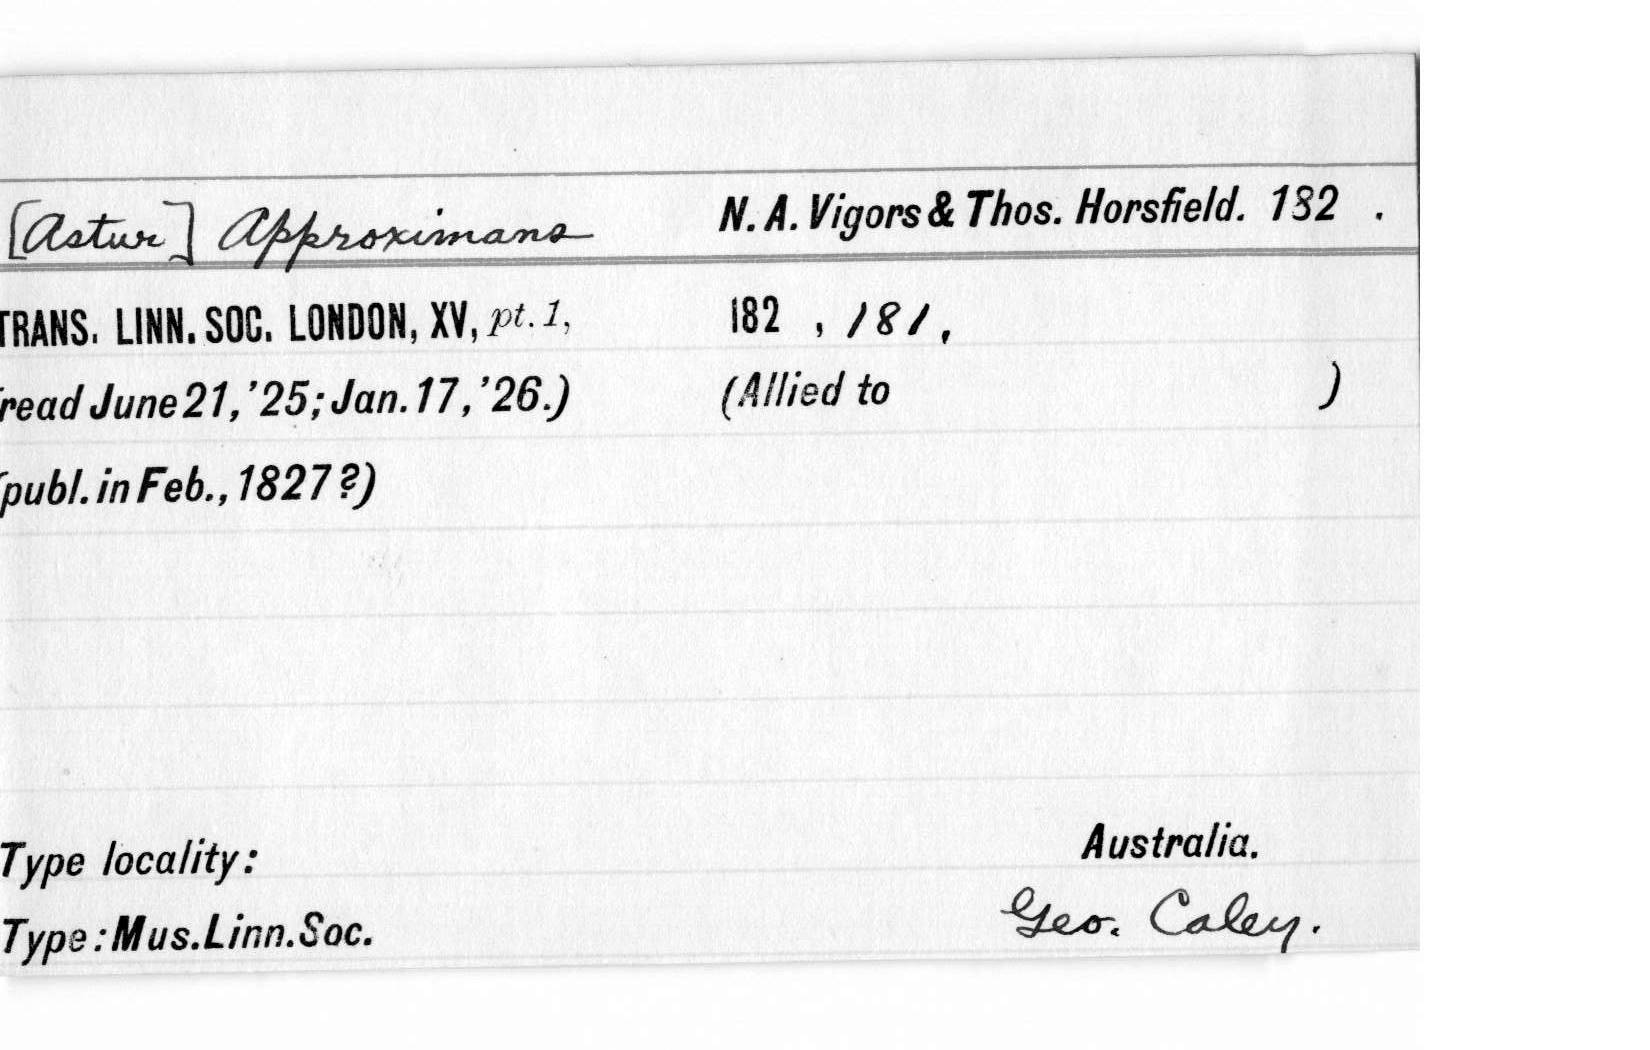 [Astur] Approximans N. A. Vigors & Thos. Horsfield. 182 .
TRANS. LINN. SOC. LONDON, XV, pt. 1, 182 , 181,
(read June 21, '25; Jan. 17, '26.) (Allied to )
(publ. in Feb., 1827 ?)
Type locality: Australia.
Type: Mus. Linn. Soc. Geo. Caley.